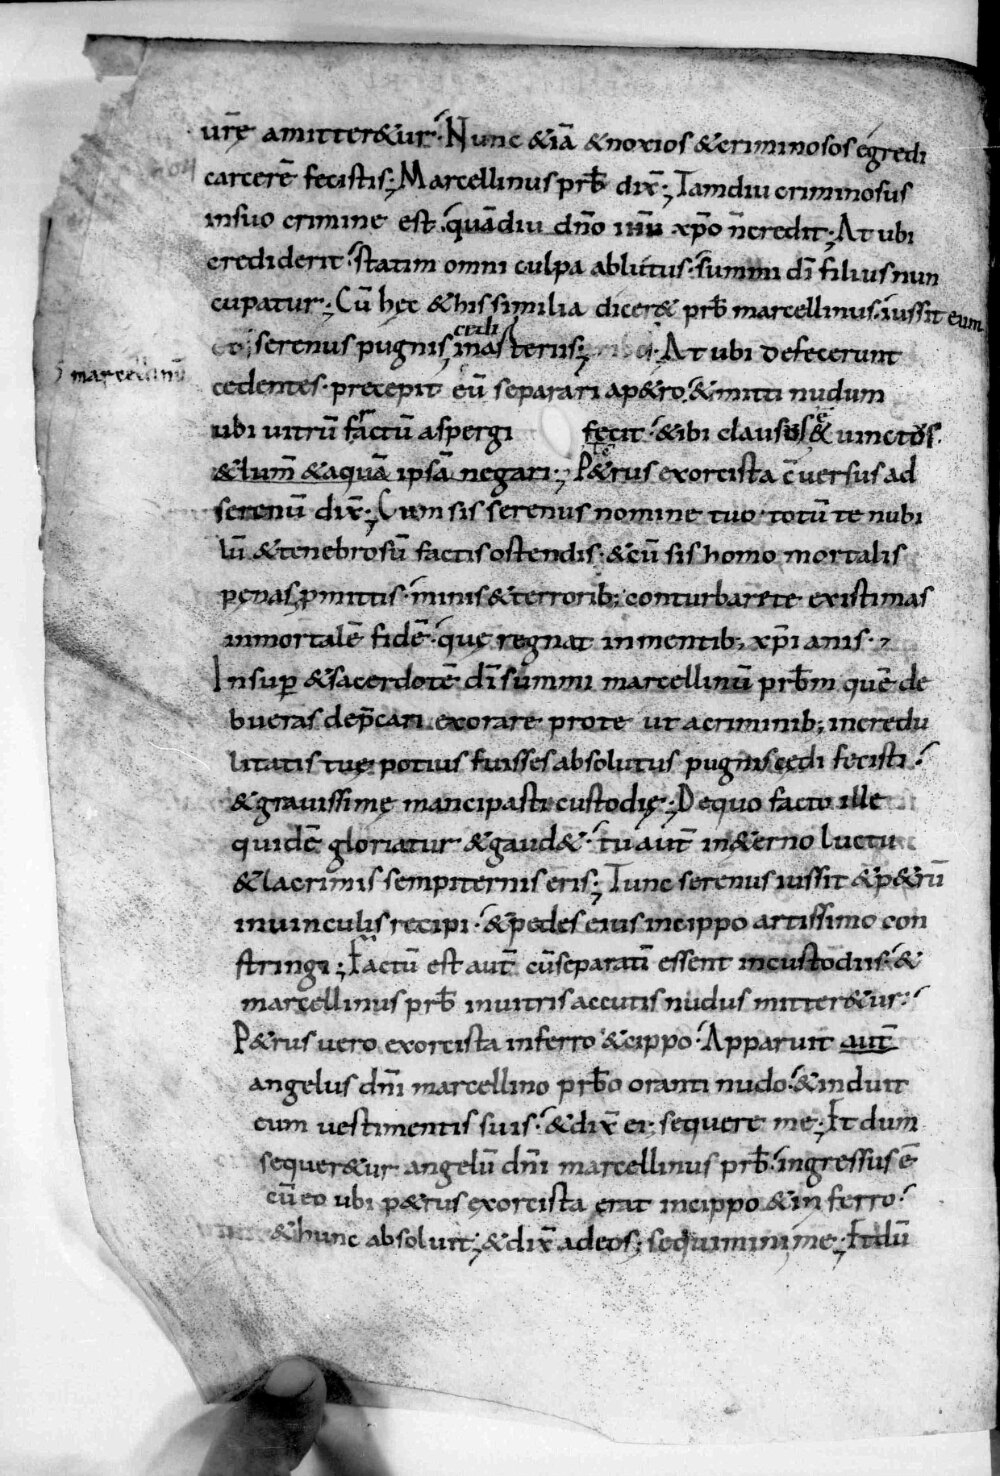 urę amitter&ur; Nunc &iā &noxios &criminosos egredi
carcerē fecistis; Marcellinus prb̄ dix̄; Tamdiu criminosus
insuo crimine est quādiu dn̄o ihū xp̄o n̄ credit; At ubi
crediderit statim omni culpa ablutus summi dī filius nun
cupatur; Cū hęc &his similia dicer& prb̄ marcellinus iussit eum
cedi
serenus pugnis; At ubi defecerunt
marcellinū
cedentes precepit eū separari ap&ro &mitti nudum
ubi uitrū fractū aspergi fecit &ibi clausos & uinctos
&lum̄ &aquā ipsā negari; P&rus exorcista c̄uersus ad
serenū dix̄; Cum sis serenus nomine tuo totū te nubi
lū &tenebrosū factis ostendis &cū sis homo mortalis
penas p̄mittis minis &terrorib; conturbare te existimas
inmortalē fidē quę regnat inmentib; xp̄i anis
Insup &sacerdotē dī summi marcellinū prb̄m quē de
bueras dep̄cari exorare prote ut acriminib; incredu
litatis tuę potius fuisses absolutus pugnis cędi fecisti
&grauissimę mancipasti custodię; Dequo facto ille
quidē gloriatur &gaud& tu aut̄ in&erno luctu
&lacrimis sempiternis eris; Tunc serenus iussit &p&rū
inuinculis recipi &pedes eius incippo artissimo con
stringi; Factū est aut̄ cūseparati essent incustodiis &
marcellinus prb̄ inuitris accutis nudus mitter&ur
P&rus uero exorcista inferro &cippo Apparuit aut̄
angelus dn̄i marcellino prb̄o oranti nudo &induit
eum uestimentis suis &dix̄ ei; sequere me; Et dum
sequer&ur angelū dn̄i marcellinus prb̄ ingressus ē
cū eo ubi p&rus exorcista erat incippo &in ferro
&hunc absoluit; &dix̄ adeos; sequimini me; Et dū